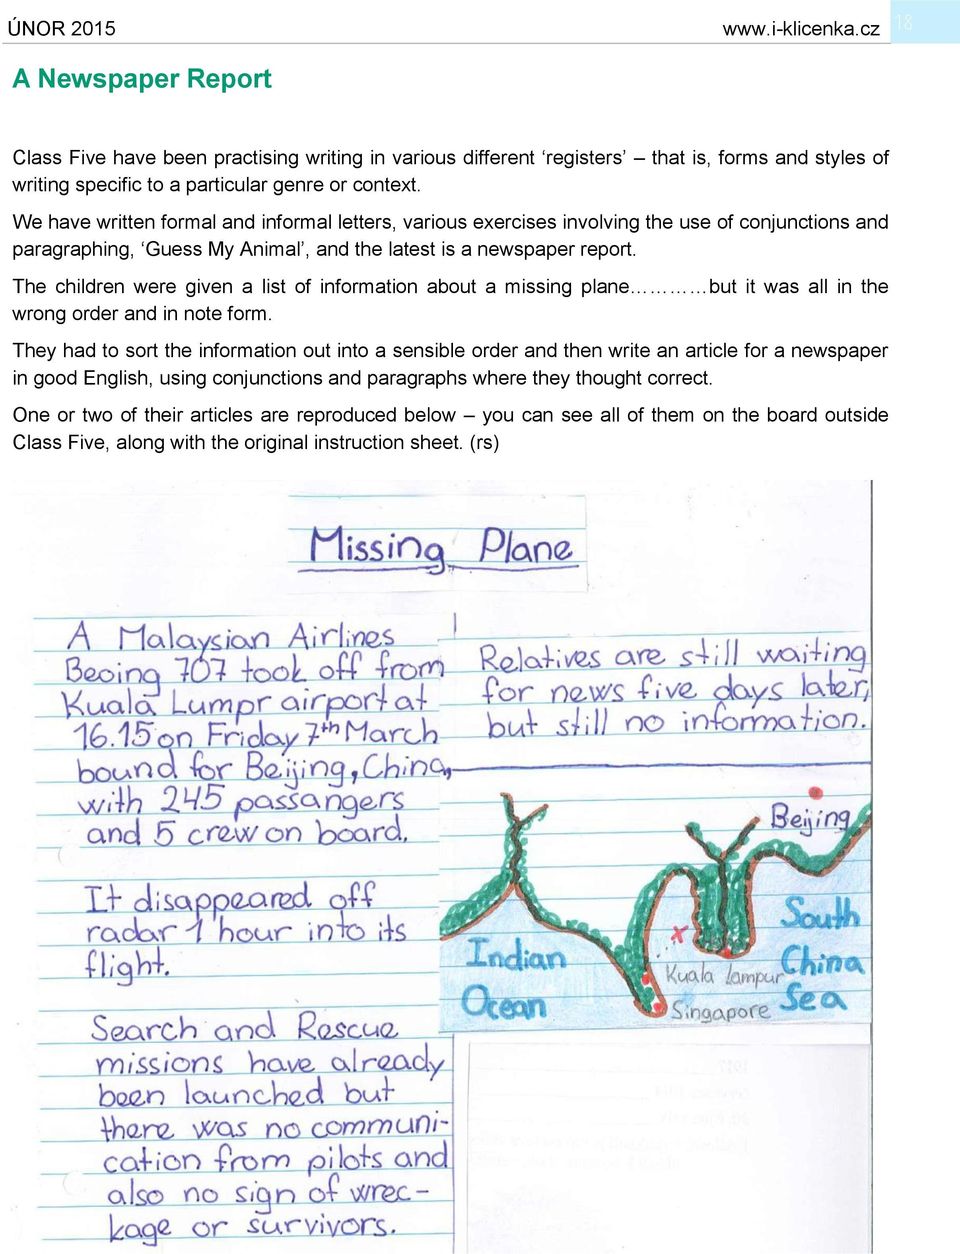 ÚNOR 2015
www.i-klicenka.cz 18
A Newspaper Report
Class Five have been practising writing in various different ‘registers’ – that is, forms and styles of
writing specific to a particular genre or context.
We have written formal and informal letters, various exercises involving the use of conjunctions and
paragraphing, ‘Guess My Animal’, and the latest is a newspaper report.
The children were given a list of information about a missing plane…………but it was all in the
wrong order and in note form.
They had to sort the information out into a sensible order and then write an article for a newspaper
in good English, using conjunctions and paragraphs where they thought correct.
One or two of their articles are reproduced below – you can see all of them on the board outside
Class Five, along with the original instruction sheet. (rs)
Missing Plane
A Malaysian Airlines
Beoing 707 took off from
Kuala Lumpr airport at
16.15 on Friday 7th March
bound for Beijing, China,
with 245 passangers
and 5 crew on board.
It disappeared off
radar 1 hour into its
flight.
Search and Rescue
missions have already
been launched but
there was no communi-
cation from pilots and
also no sign of wrec-
kage or survivors.
Relatives are still waiting
for news five days later,
but still no information.
Beijing
South
China
Sea
Indian
Ocean
Kuala Lampur
Singapore